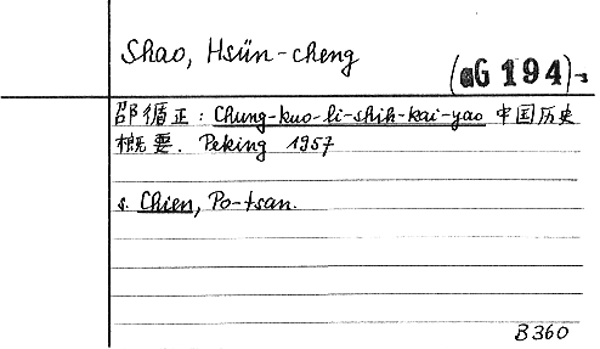 Shao, Hsün-cheng
(aG 194)-
邵循正: Chung-kuo-li-shih-kai-yao 中国历史
概要. Peking 1957
s. Chien, Po-tsan.
B360